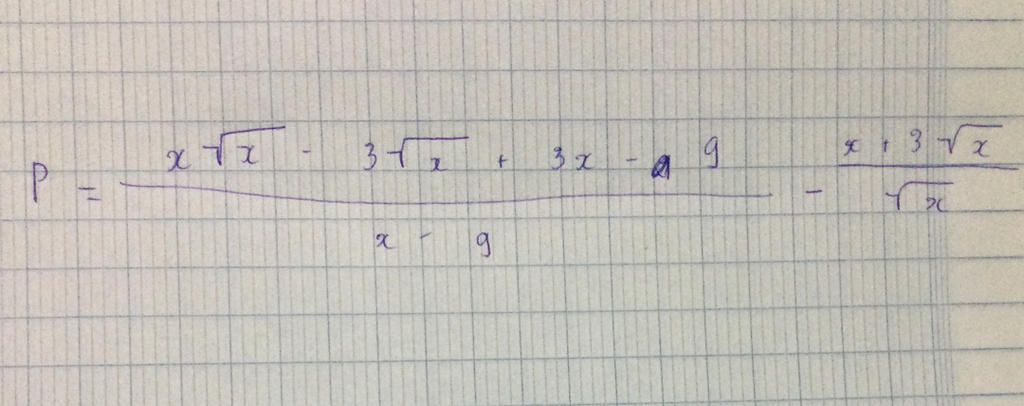 P = \frac{x\sqrt{x} - 3\sqrt{x} + 3x - 9}{x - 9} - \frac{x + 3\sqrt{x}}{\sqrt{x}}